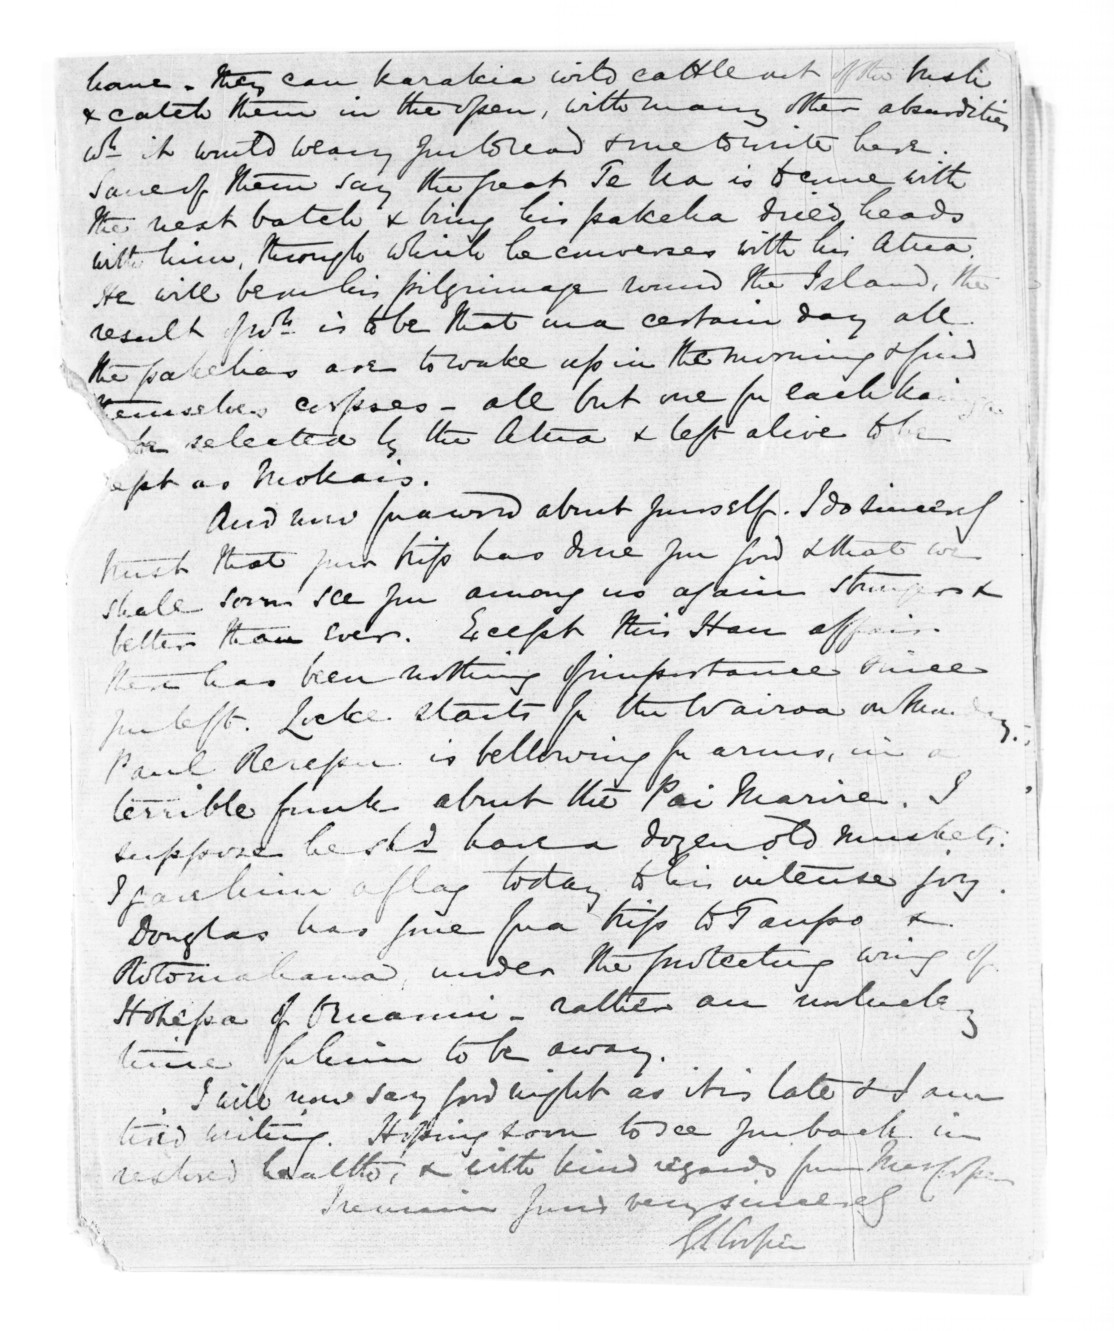 home - they can karakia wild cattle out of the bush
& catch them in the open, with many other absurdities
wh it would weary you to read & me to write here.
Some of them say the great Te Ua is to come with
the next batch & bring his pakeha dried heads
with him, through which he converses with his Atua.
He will be on his pilgrimage round the Island, the
result of wh is to be that on a certain day all
the pakehas are to wake up in the morning & find
themselves corpses - all but one for each kainga
be selected by the Atua & left alive to be
ept as Mokais.
And now for a word about yourself. I do sincerely
trust that your trip has done you good & that we
shall soon see you among us again stronger &
better than ever. Except this Hau affair
there has been nothing of importance since
you left. Locke starts for the Wairoa on Monday.
Paul Rerepu is bellowing for arms, in a
terrible funk about the Pai Marire. I
suppose he shd have a dozen old muskets.
I gave him a flag today to his intense joy.
Douglas has gone for a trip to Taupo &
Rotomahana, under the protecting wing of
Hohepa of - rather an unlucky
time for him to be away.
I will now say good night as it is late & I am
tired writing. Hoping soon to see you back in
restored health, & with kind regards from Mrs Cooper
I remain yours very sincerely
GS Cooper